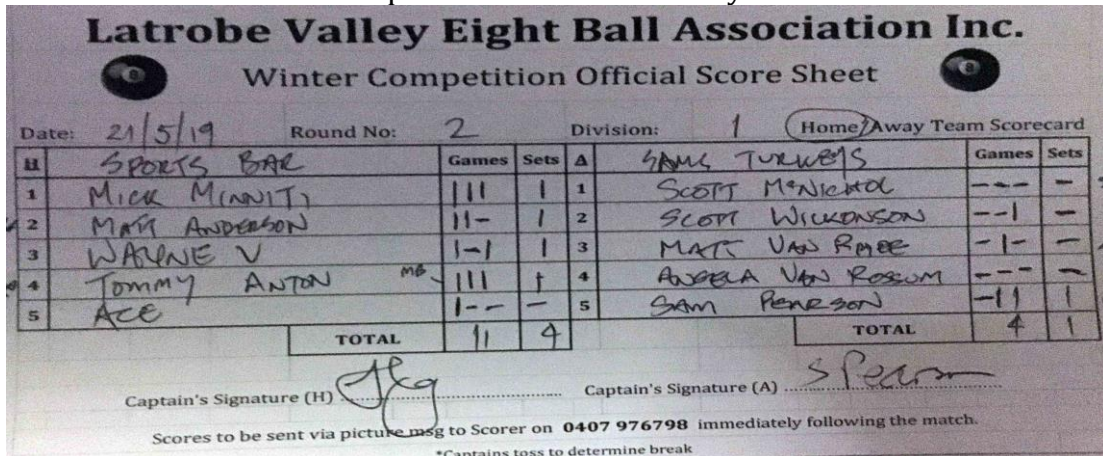 Latrobe Valley Eight Ball Association Inc.
Winter Competition Official Score Sheet
Date: 21/5/19 Round No: 2 Division: 1 Home/Away Team Scorecard
H SPORTS BAR Games Sets A SAMS TURKEYS Games Sets
1 MICK MINNITI 111 1 1 SCOTT McNICHOL --- -
2 MATT ANDERSON 11- 1 2 SCOTT WILKONSON --1 -
3 WAYNE V 1-1 1 3 MATT VAN -1- -
4 TOMMY ANTON MB 111 1 4 ANGELA VAN ROSSUM --- -
5 ACE 1-- - 5 SAM PEARSON -11 1
TOTAL 11 4 TOTAL 4 1
Captain's Signature (H) Captain's Signature (A) S Pearson
Scores to be sent via picture msg to Scorer on 0407 976798 immediately following the match.
*Captains toss to determine break